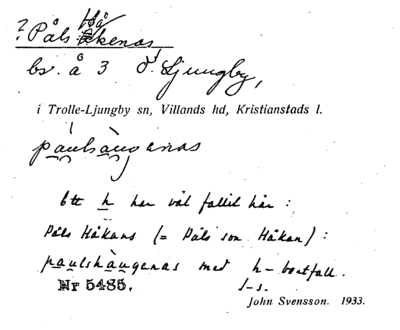 ? Påls Håkenas
bs. å 3 Ö. Ljungby,
i Trolle-Ljungby sn, Villands hd, Kristianstads l.
Ett h har väl fallit här:
Påls Håkans (= Påls son Håkan):
med h-bortfall.
Nr 5485. J-s.
John Svensson. 1933.